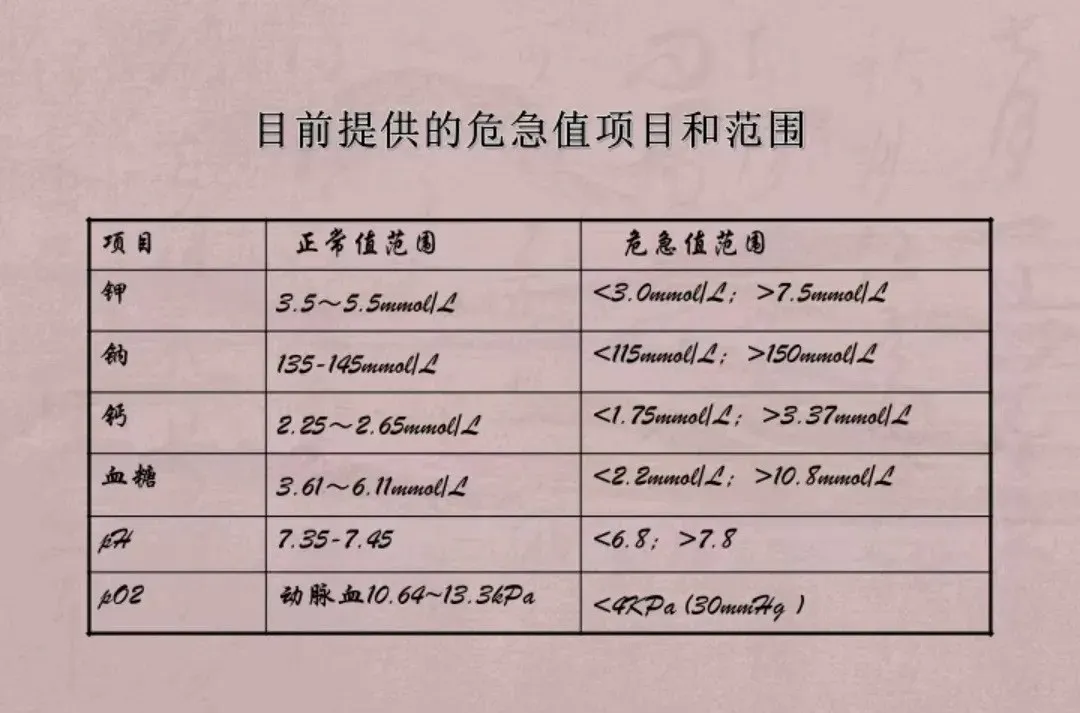 目前提供的危急值项目和范围
项目 正常值范围 危急值范围
钾 3.5~5.5mmol/L <3.0mmol/L; >7.5mmol/L
钠 135-145mmol/L <115mmol/L; >150mmol/L
钙 2.25~2.65mmol/L <1.75mmol/L; >3.37mmol/L
血糖 3.61~6.11mmol/L <2.2mmol/L; >10.8mmol/L
pH 7.35-7.45 <6.8; >7.8
pO2 动脉血10.64~13.3kPa <4KPa (30mmHg )